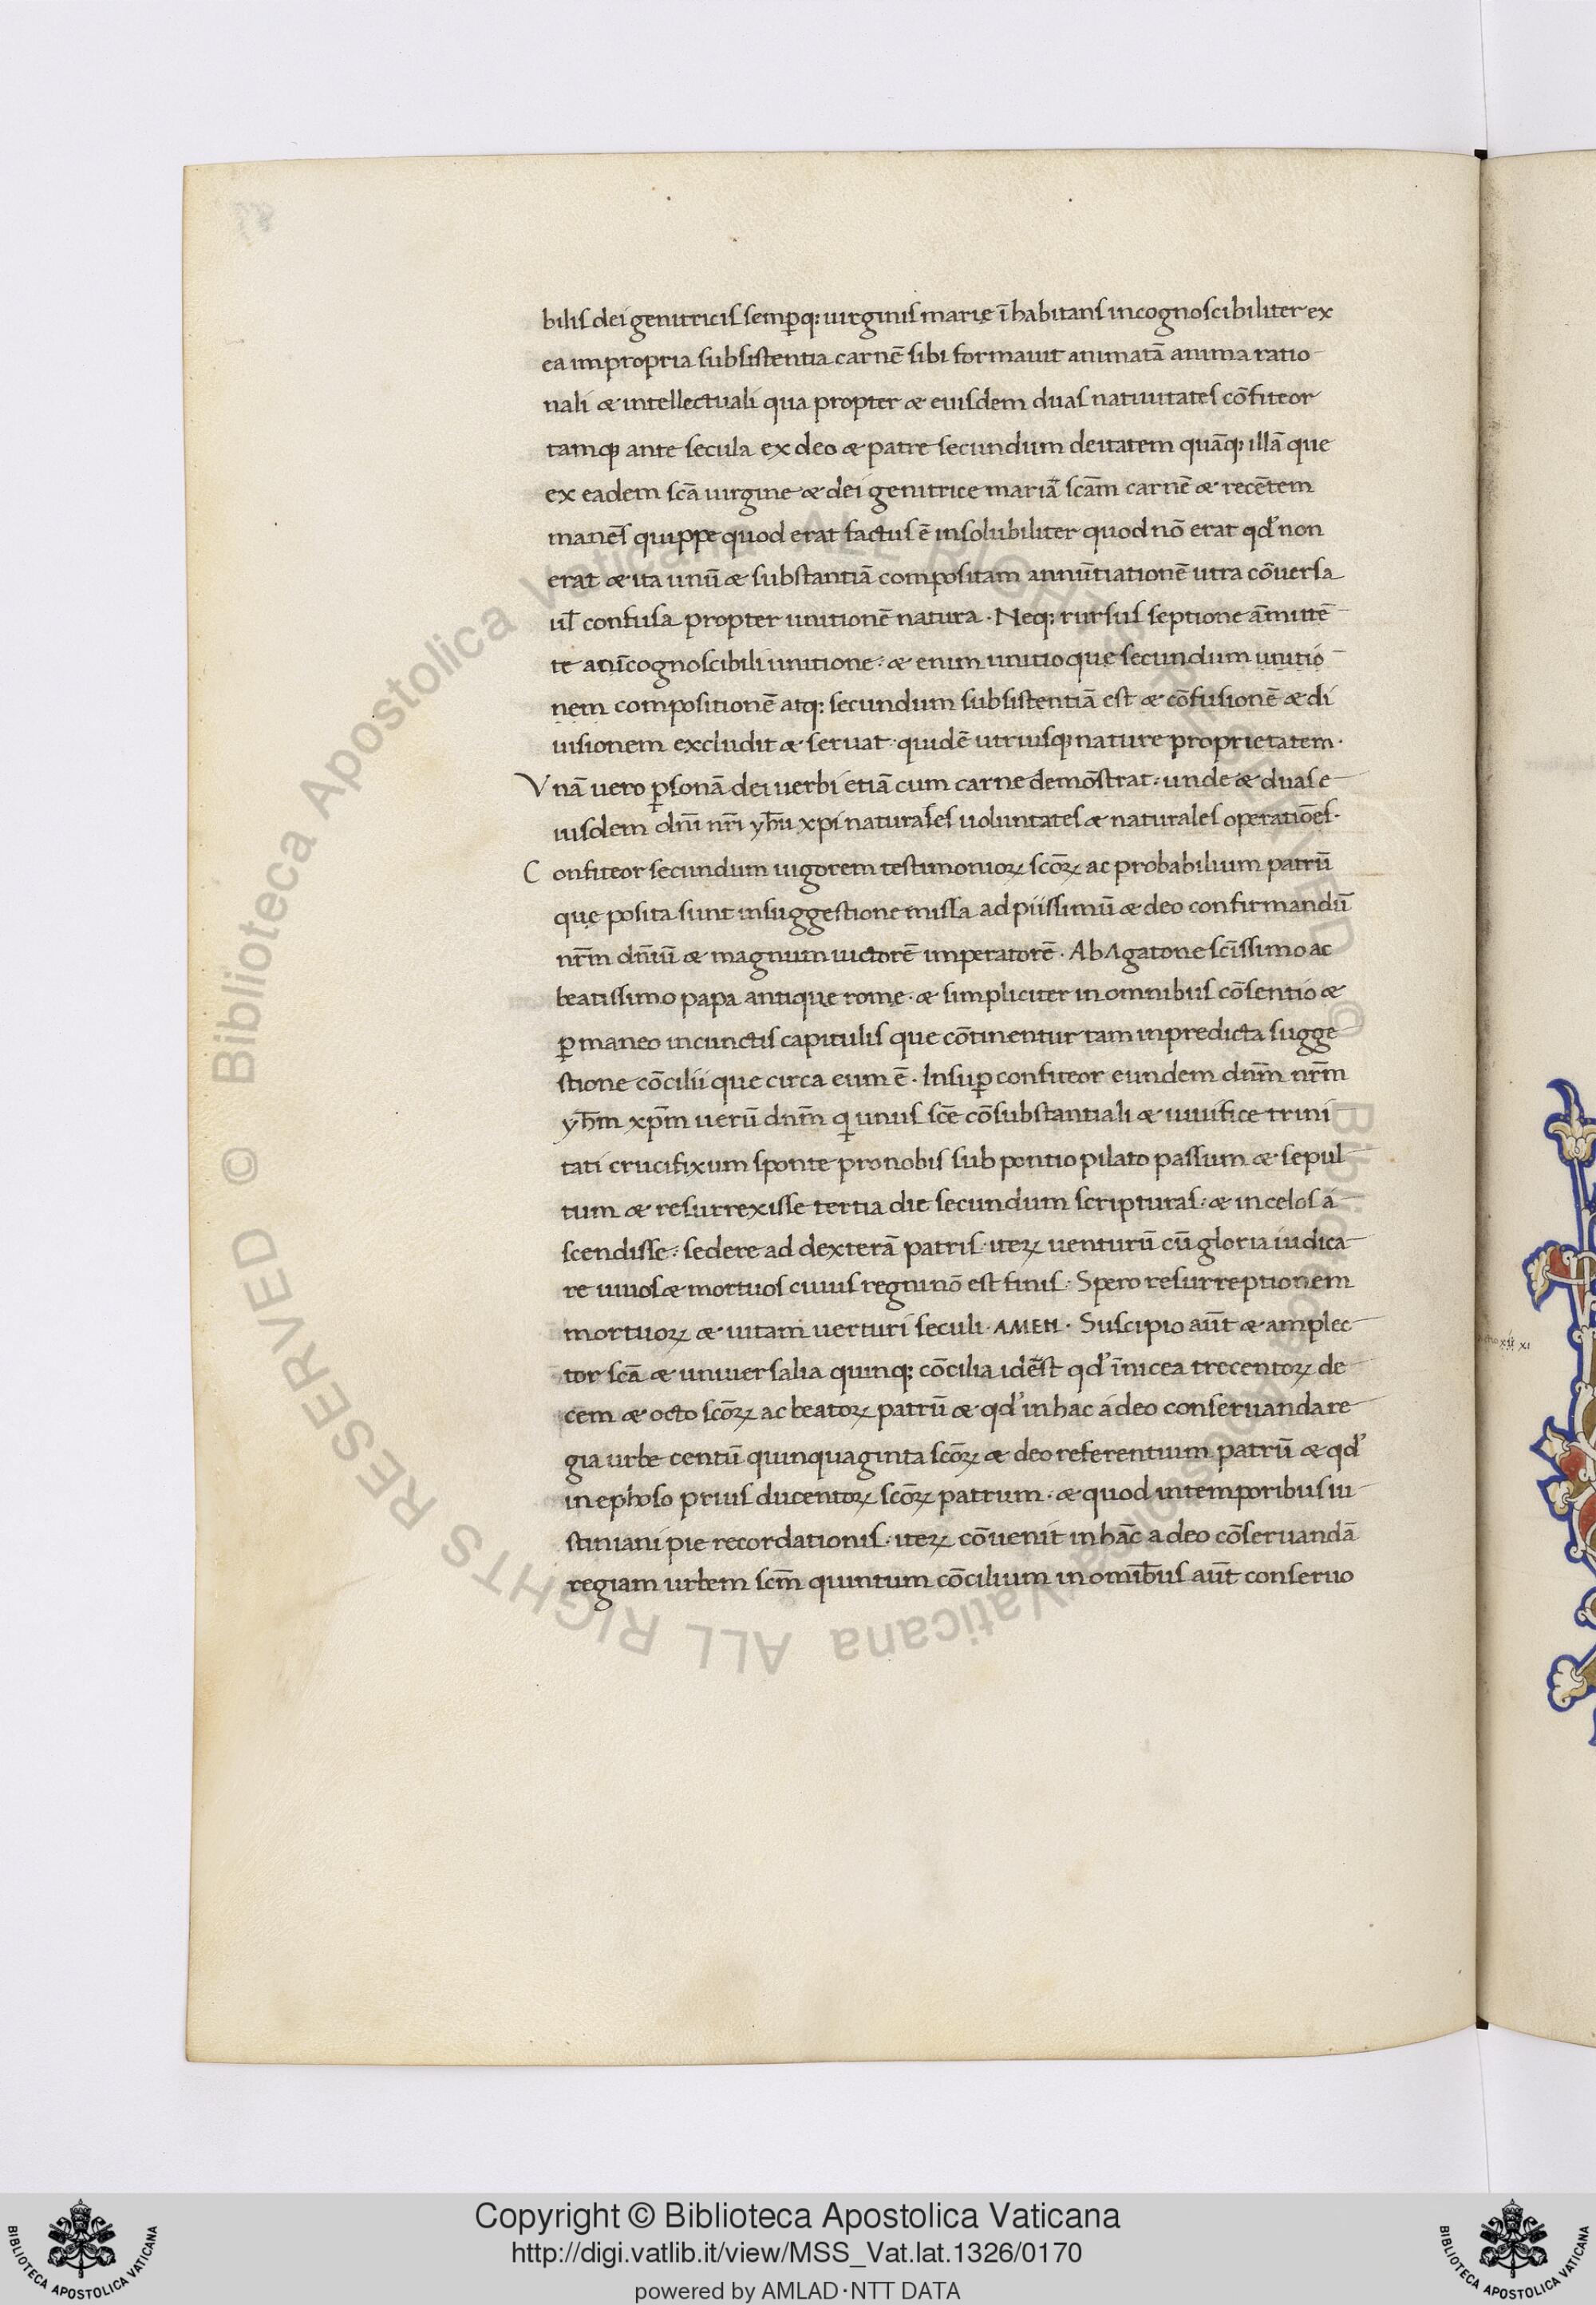 bilis dei genitricis semꝑq; uirginis marię ī habitans incognoscibiliter ex
ea impropria subsistentia carnē sibi formauit animatā anima ratio
nali & intellectuali qua propter & eiusdem duas natiuitates cōfiteor
tamq; ante secula ex deo & patre secundum deitatem quāq; illā que
ex eadem scā uirgine & dei genitrice mariā scām carnē & recētem
manēs quippe quod erat factus ē insolubiliter quod nō erat qd' non
erat & ita unū & substantiā compositam annūtiationē utra cōuersa
ul̄ confusa propter unitionē natura · Neq; rursus septione āmittē
te anīcognoscibili unitione · & enim unitio que secundum unitio
nem compositionē atq; secundum subsistentiā est & cōfusionē & di
uisionem excludit & seruat · quidē utriusq; nature proprietatem ·
Vnā uero ꝑsonā dei uerbi etiā cum carne demōstrat · unde & duas e
iusdem dnī nrī yħu xpi naturales uoluntates & naturales operatiōes ·
Confiteor secundum uigorem testimonioꝝ scōꝝ ac probabilium patrū
quę posita sunt insuggestione missa ad piissimū & deo confirmandū
nr̄m dn̄iū & magnum uictorē imperatorē · Ab Agatone scīssimo ac
beatissimo papa antique rome · & simpliciter in omnibus cōsentio &
ꝑmaneo incunctis capitulis que cōtinentur tam inpredicta sugge
stione cōcilii que circa eum ē · Insuꝑ confiteor eundem dnm̄ nr̄m
yħm xp̄m uerū dnm̄ q unus scē cōsubstantiali & uiuifice trini
tati crucifixum sponte pro nobis sub pontio pilato passum & sepul
tum & resurrexisse tertia die secundum scripturas · & in celos a
scendisse · sedere ad dexterā patris · iteꝝ uenturū cū gloria iudica
re uiuos & mortuos cuius regni nō est finis · Spero resurreptionem
mortuoꝝ & uitam uerturi seculi · AMEN · Suscipio aūt & amplec
tor scā & uniuersalia quinq; cōcilia idēst qd' īnicea trecentoꝝ de
cem & octo scōꝝ ac beatoꝝ patrū & qd' in hac a deo conseruanda re
gia urbe centū quinquaginta scōꝝ & deo referentium patrū & qd'
in ephoso prius ducentoꝝ scōꝝ patrum · & quod intemporibus iu
stiniani pie recordationis · iteꝝ cōuenit in hāc a deo cōseruandā
regiam urbem scm̄ quintum cōcilium in omībus aūt conseruo
© Biblioteca Apostolica Vaticana ALL RIGHTS RESERVED © Biblioteca Apostolica Vaticana ALL RIGHTS RESERVED
Copyright © Biblioteca Apostolica Vaticana
http://digi.vatlib.it/view/MSS_Vat.lat.1326/0170
powered by AMLAD·NTT DATA
BIBLIOTECA APOSTOLICA VATICANA
BIBLIOTECA APOSTOLICA VATICANA